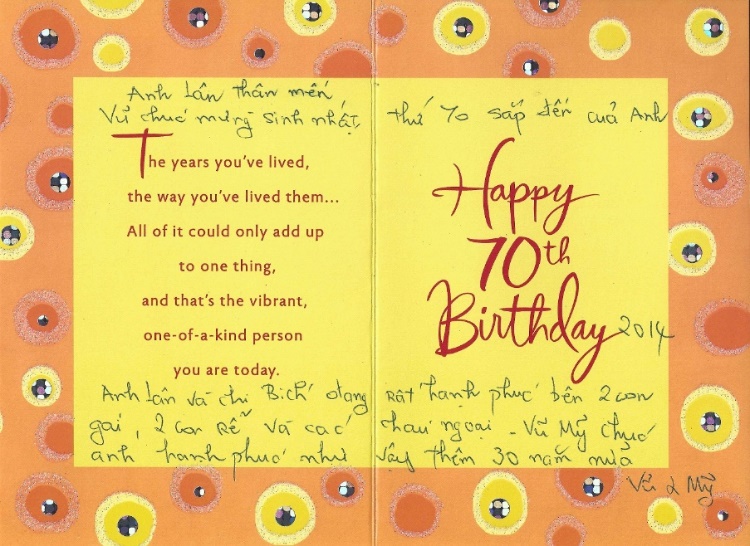 Anh Lân thân mến
Vũ chúc mừng sinh nhật, thứ 70 sắp đến của Anh
The years you've lived,
the way you've lived them...
All of it could only add up
to one thing,
and that's the vibrant,
one-of-a-kind person
you are today.
Happy
70th
Birthday 2014
Anh Lân và chi Bích đang rất hạnh phúc bên 2 con
gai, 2 con Rể và các cháu ngoại - Vũ Mỹ chúc
anh hanh phúc như vậy thêm 30 năm nữa
Vũ & Mỹ